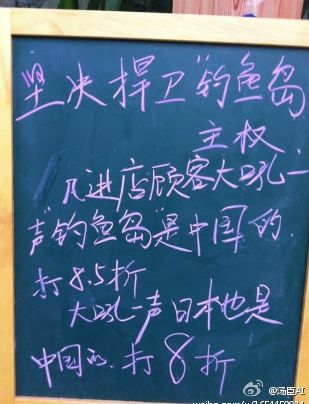 坚决捍卫"钓鱼岛
主权.
凡进店顾客大吼一
声钓鱼岛是中国的.
打8.5折
大吼一声日本也是
中国的.打8折
@汤臣AI